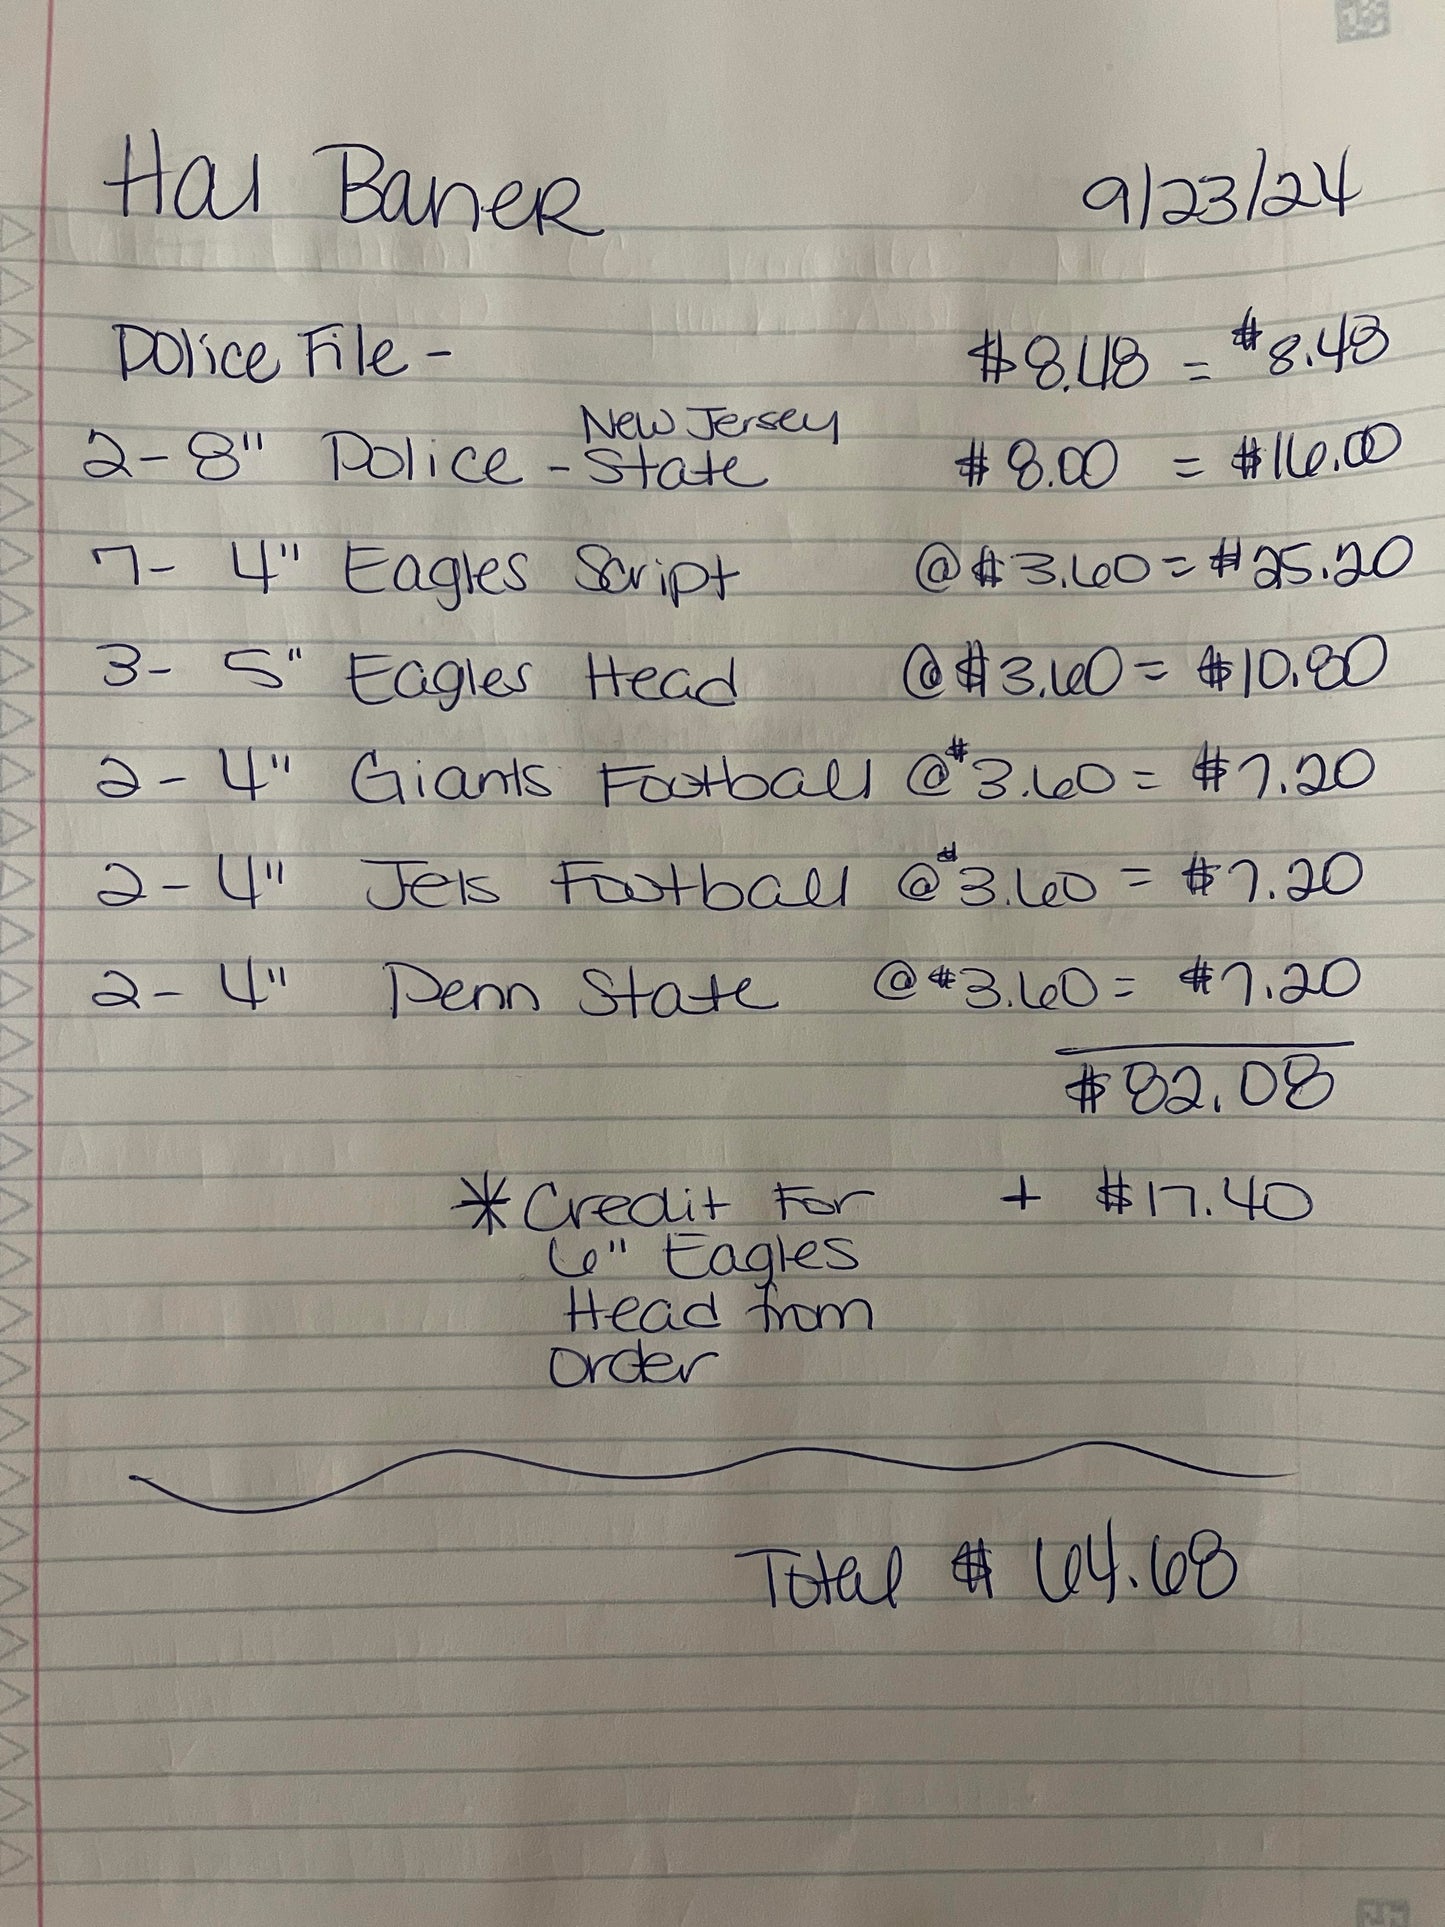 Hal Baner 9/23/24
Police File - $8.48 = $8.48
New Jersey
2- 8" Police - State $8.00 = $16.00
7- 4" Eagles Script @$3.60 = $25.20
3- 5" Eagles Head @$3.60 = $10.80
2- 4" Giants Football @$3.60 = $7.20
2- 4" Jets Football @$3.60 = $7.20
2- 4" Penn State @$3.60 = $7.20
$82.08
*Credit For + $17.40
6" Eagles
Head from
Order
Total $64.68